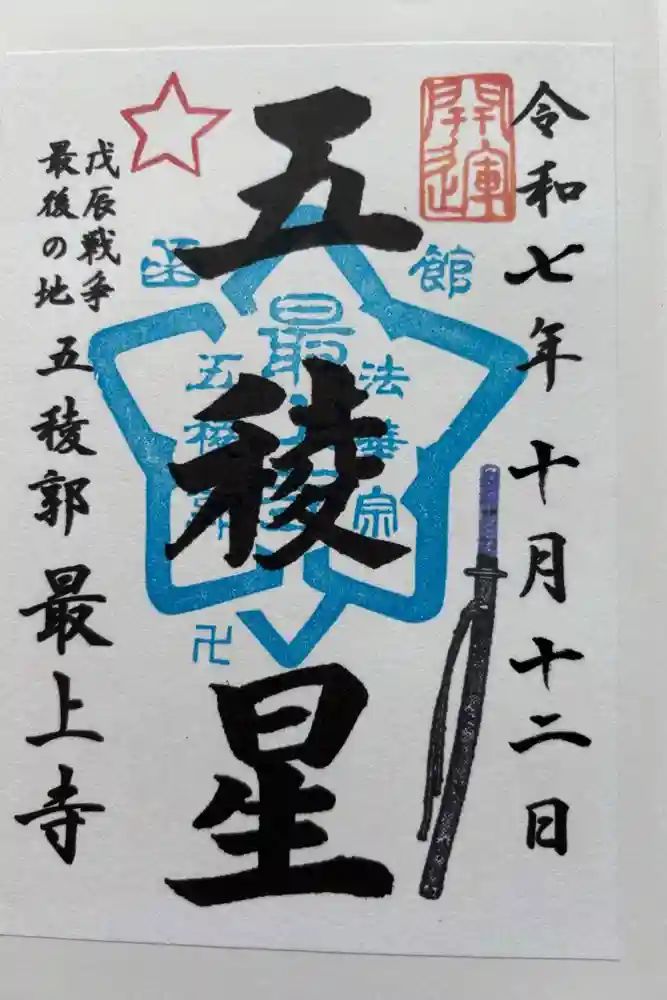 令和七年十月十二日
開運
五稜星
函館
法華宗
最上寺
五稜郭
卍
戊辰戦争
最後の地
五稜郭 最上寺